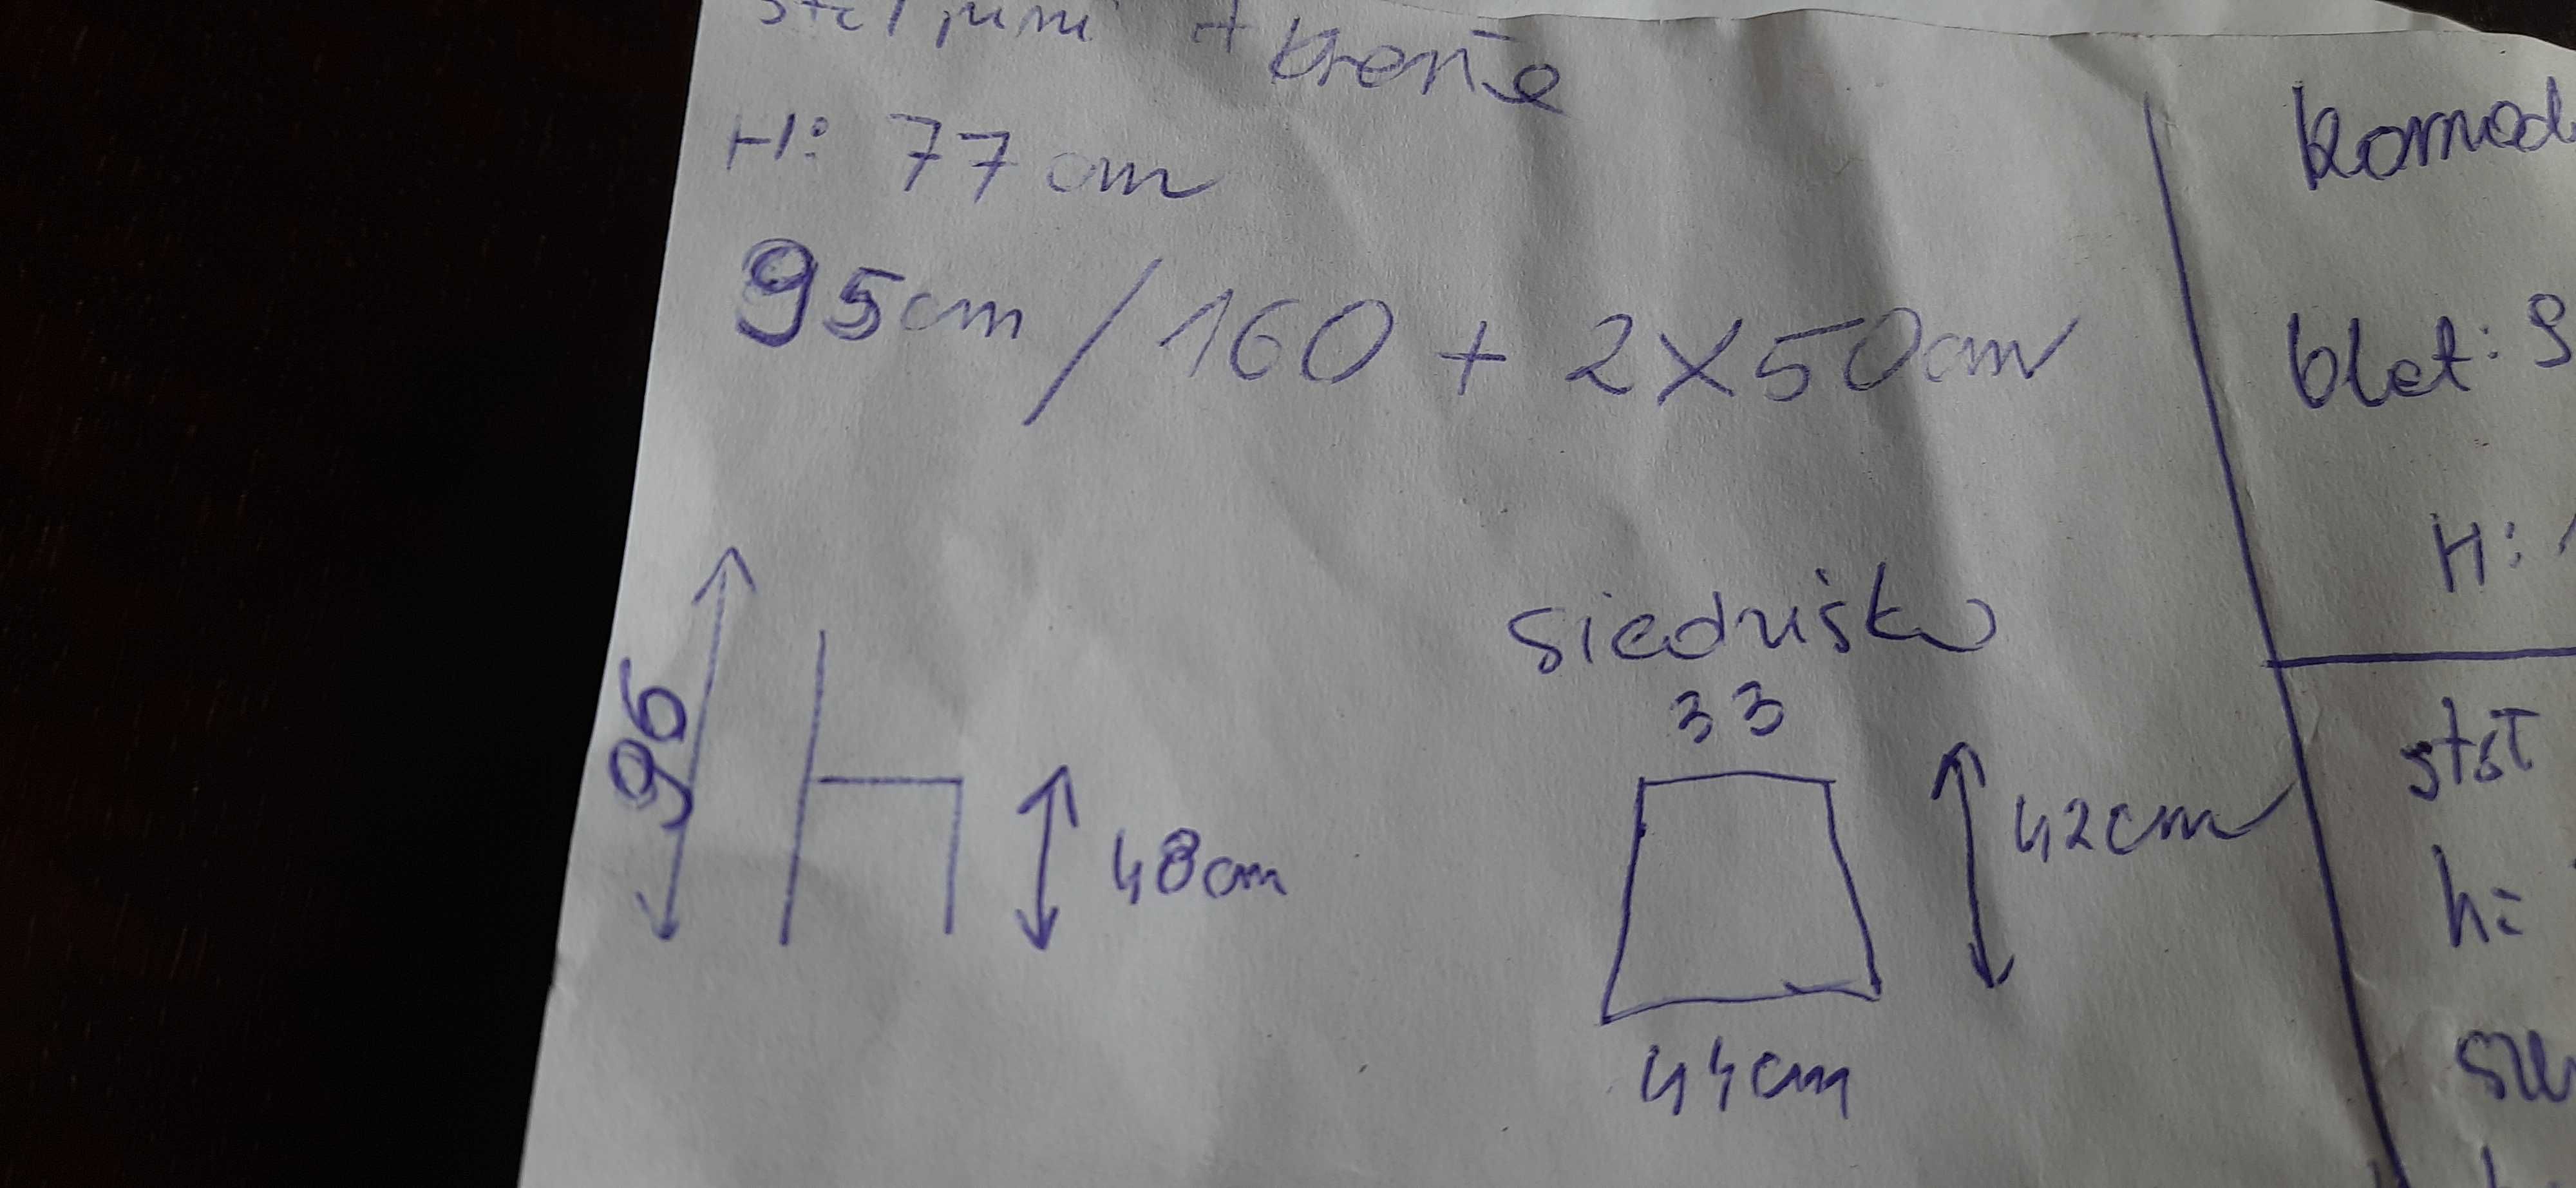 + krzesła
H: 77 cm
95cm / 160 + 2x50cm
96
48cm
siedzisko
33
42cm
44cm
komod
blat: 9
H: 1
stół
h: